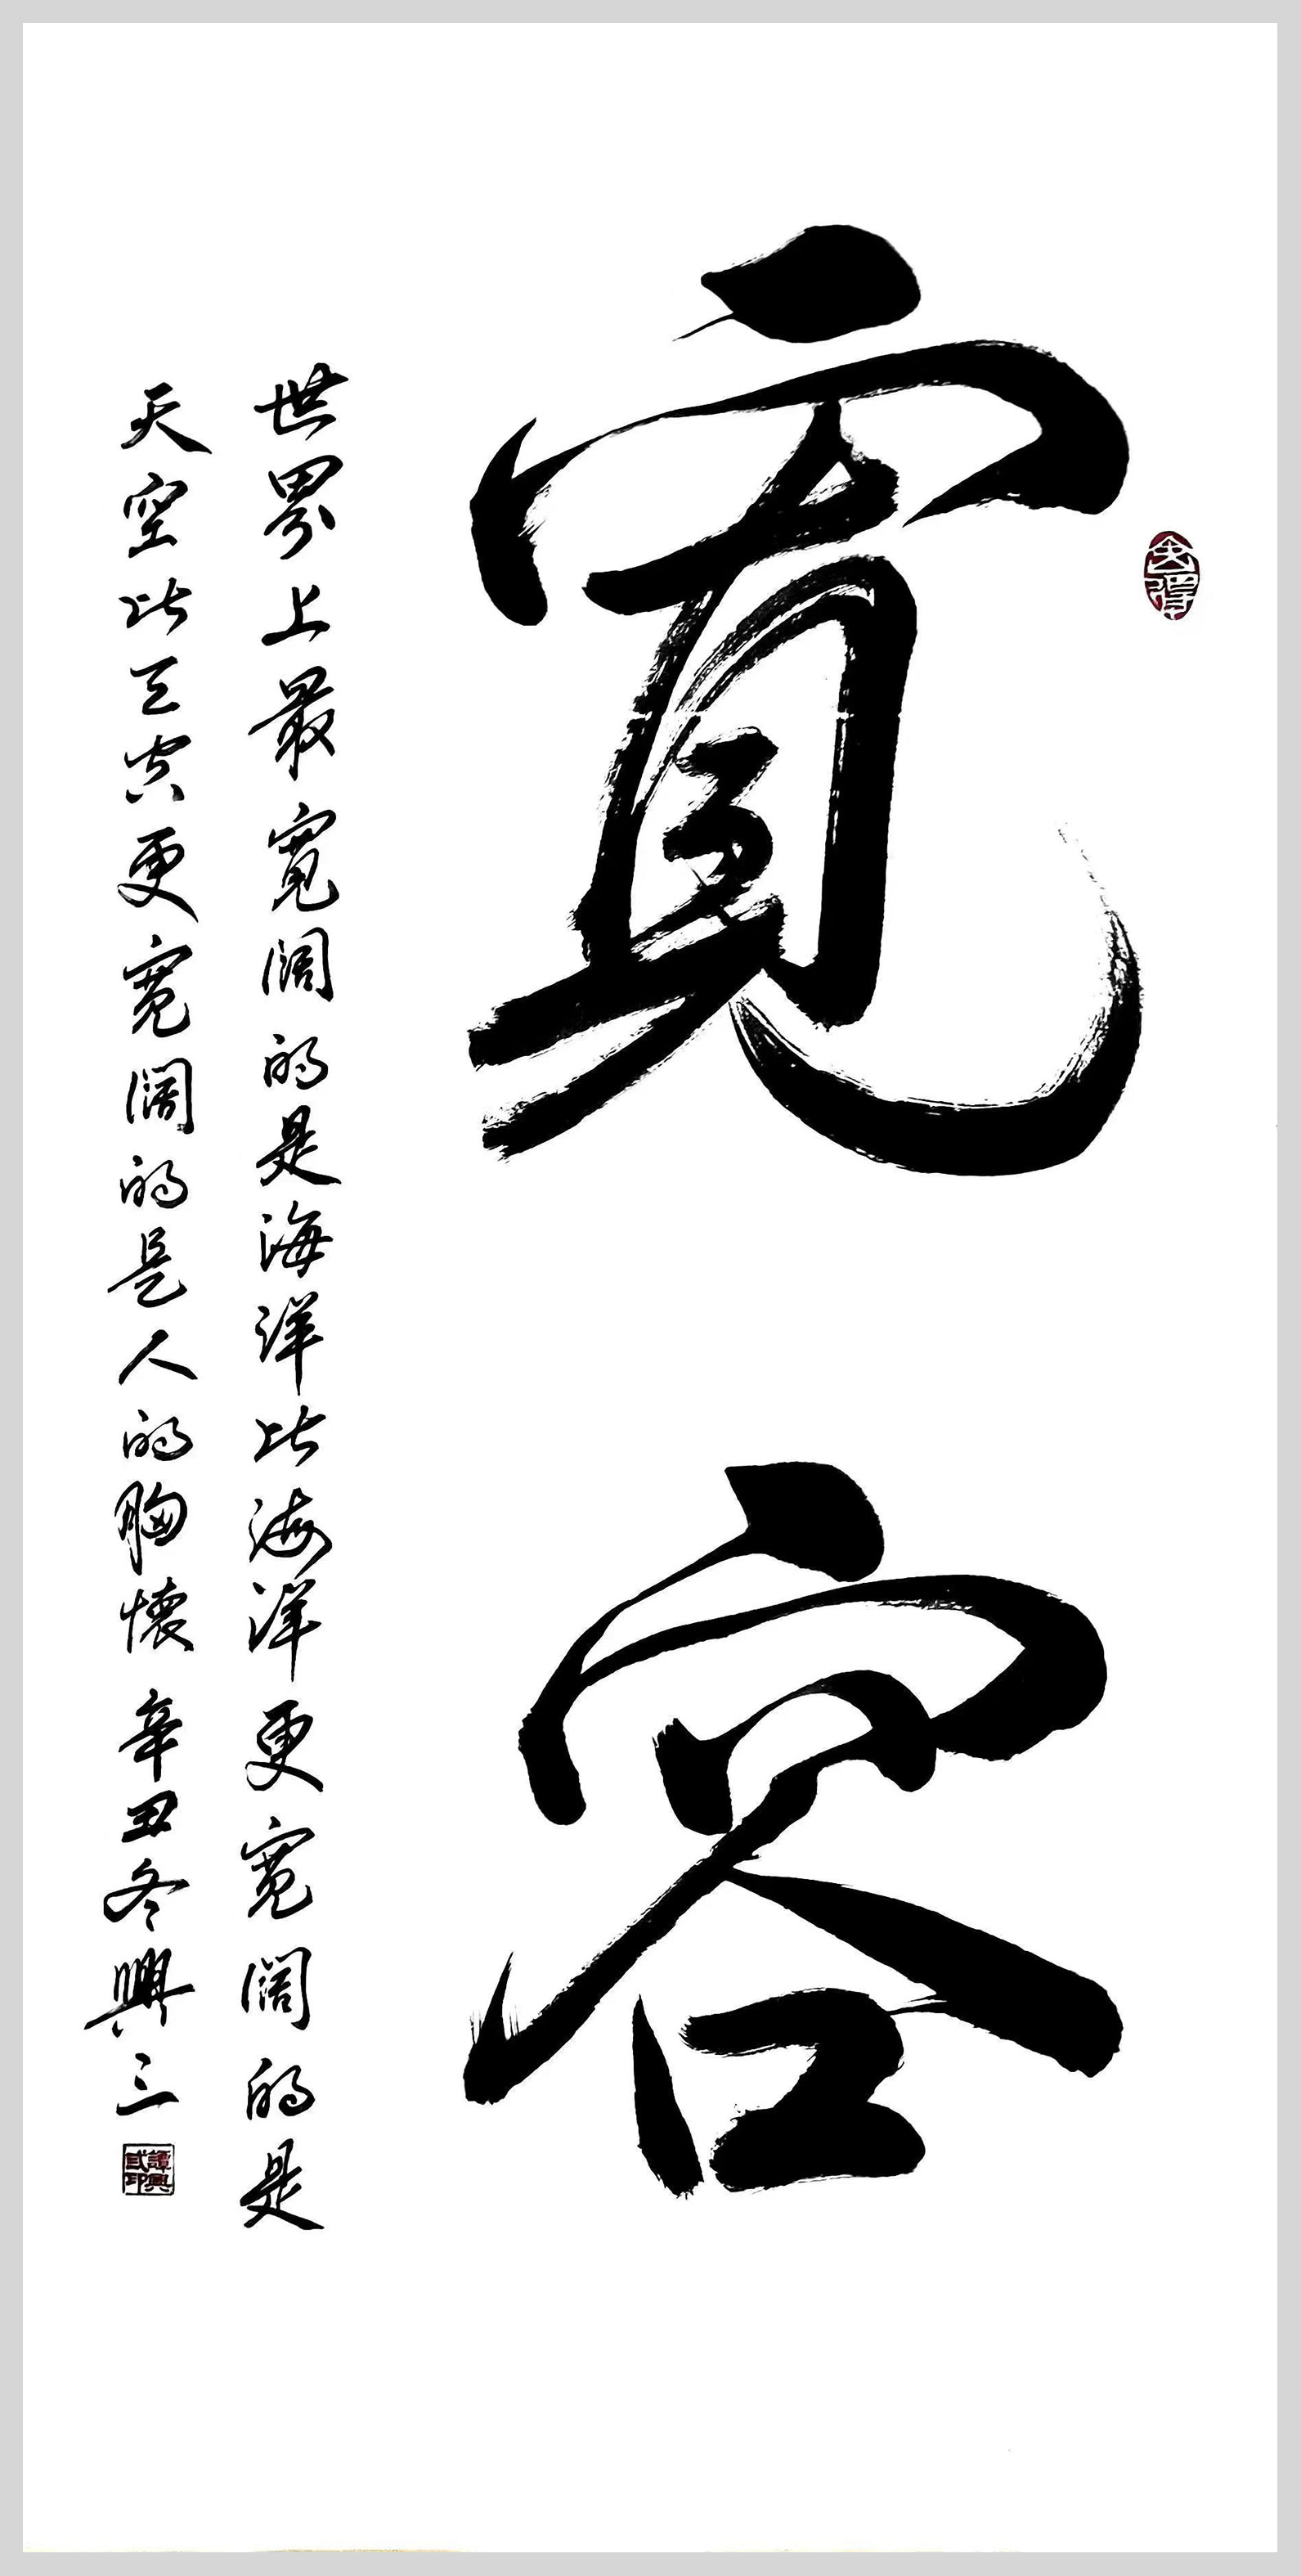 寬容
世界上最寬闊的是海洋比海洋更寬闊的是
天空比天空更寬闊的是人的胸懷 辛丑冬興三
舍得
譚興
印